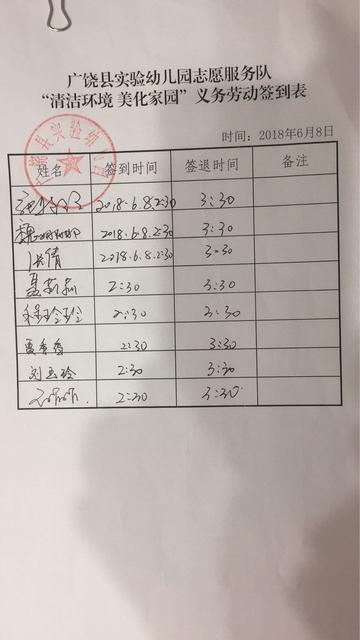 广饶县实验幼儿园志愿服务队
“清洁环境 美化家园”义务劳动签到表
时间：2018年6月8日
姓名 签到时间 签退时间 备注
2018.6.8.2:30 3:30
2018.6.8.2:30 3:30
张倩 2018.6.8.2:30 3:30
2:30 3:30
2:30 3:30
2:30 3:30
刘玉玲 2:30 3:30
2:30 3:30